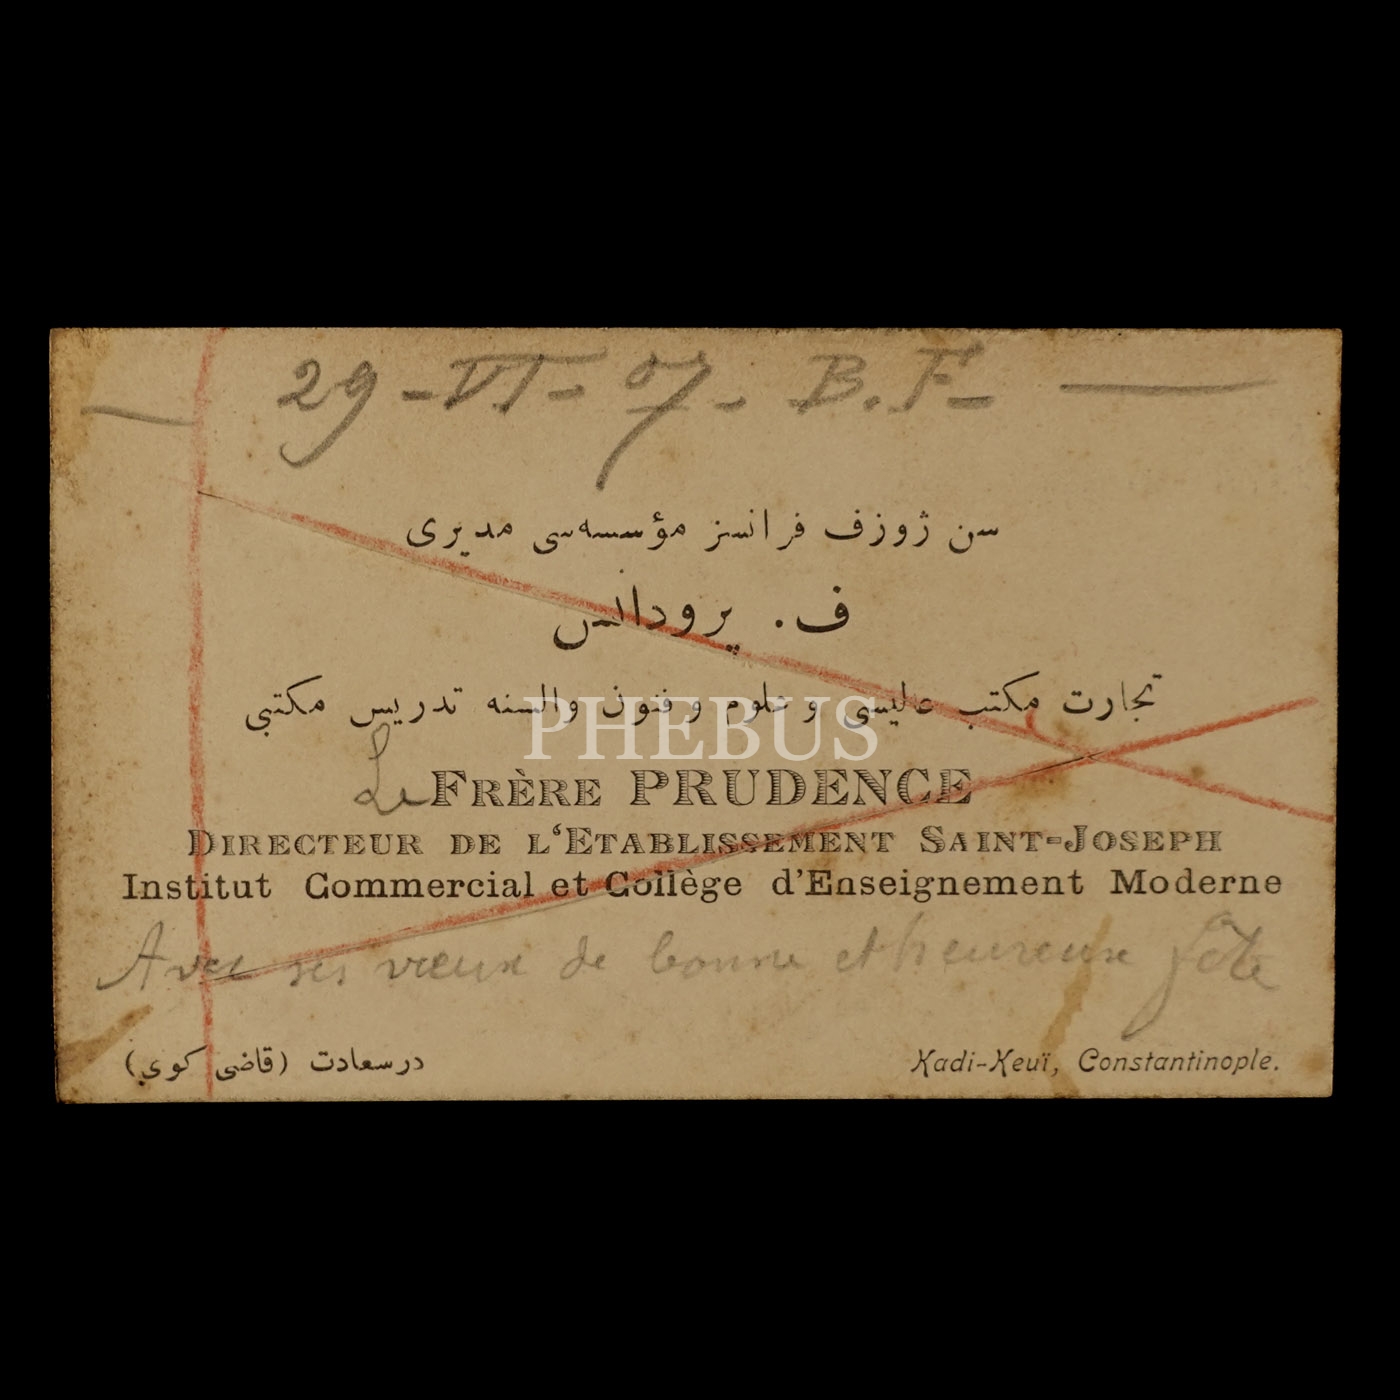 29-VI-07. B.F-
سن ژوزف فرانسز مؤسسه‌سی مدیری
ف. پرودانس
تجارت مکتب عالیسی و علوم و فنون والسنه تدریس مکتبی
PHEBUS
Le FRÈRE PRUDENCE
DIRECTEUR DE L'ETABLISSEMENT SAINT-JOSEPH
Institut Commercial et Collège d'Enseignement Moderne
Avec ses vœux de bonne et heureuse fête
درسعادت (قاضی کوی)
Kadi-Keuï, Constantinople.